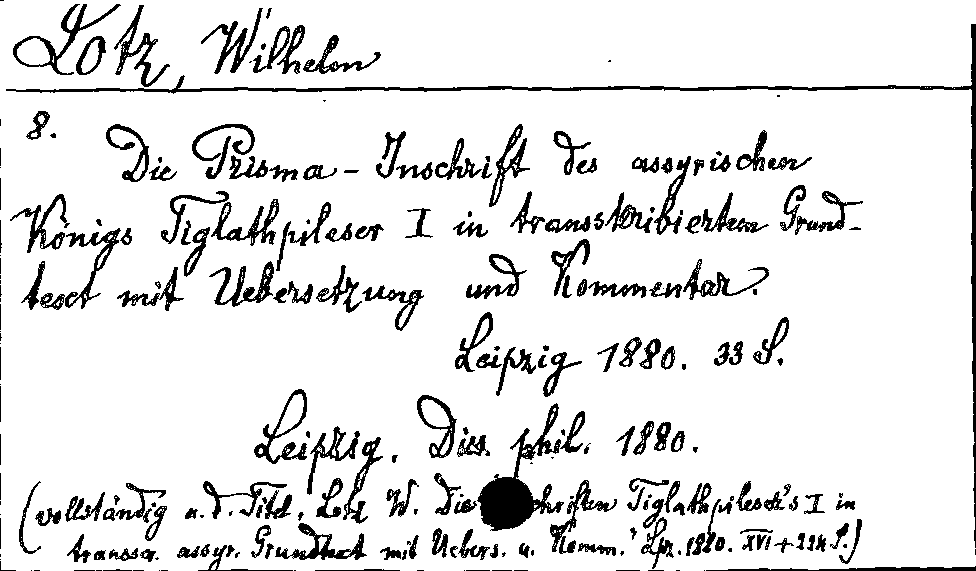 Lotz, Wilhelm
8.
Die Prisma-Inschrift des assyrischen
Königs Tiglathpileser I in transskribiertem Grund-
text mit Uebersetzung und Kommentar.
Leipzig 1880. 33 S.
Leipzig. Diss. phil. 1880.
(vollständig u. d. Titel, Lotz W. Die schriften Tiglathpileser's I in
transscr. assyr. Grundtext mit Uebers. u. Komm." Lpz. 1880. XVI + 224 S.)